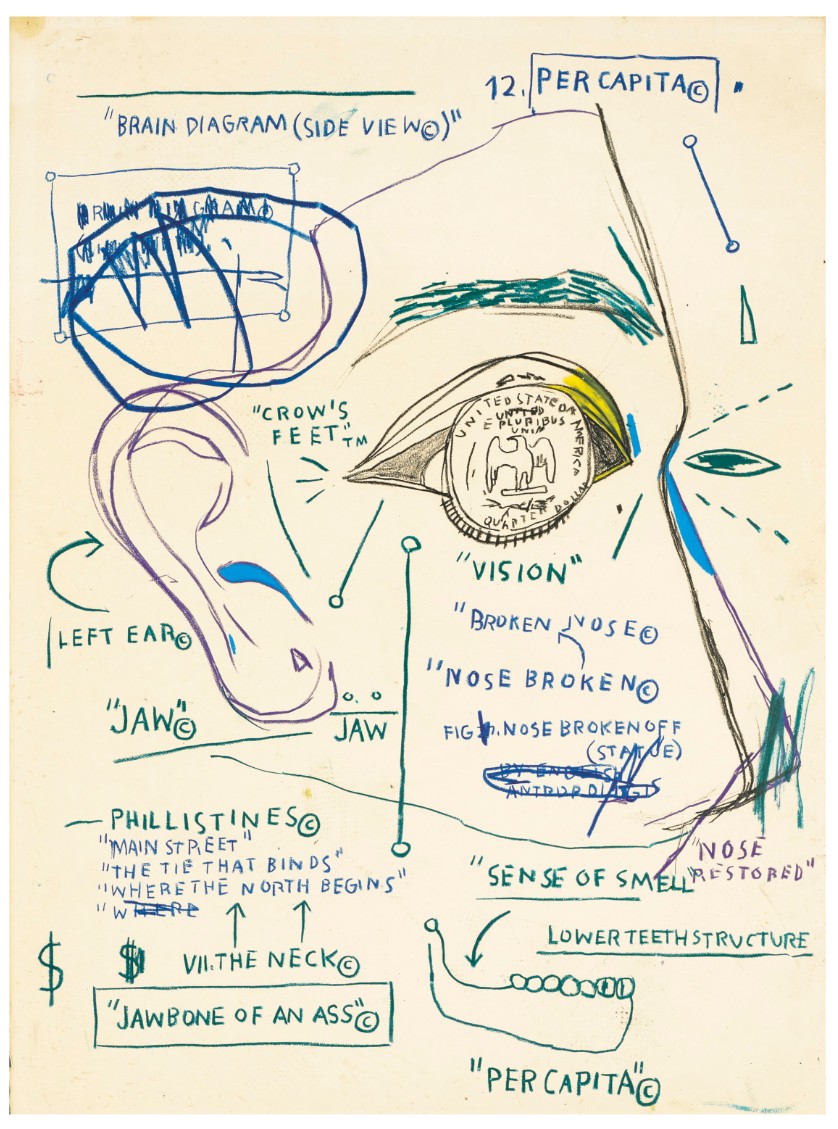 12. PER CAPITA©
"BRAIN DIAGRAM (SIDE VIEW©)"
"CROW'S
FEET"TM
UNITED STATES OF AMERICA
UNITED
E PLURIBUS
UNIM
QUARTER DOLLAR
"VISION"
LEFT EAR©
"BROKEN NOSE©
"NOSE BROKEN©
FIG. NOSE BROKEN OFF
(STATUE)
"JAW"©
JAW
PHILLISTINES©
"MAIN STREET"
"THE TIE THAT BINDS"
"WHERE THE NORTH BEGINS"
"WHERE
"NOSE
RESTORED"
"SENSE OF SMELL"
$ $ VII. THE NECK©
LOWER TEETH STRUCTURE
"JAWBONE OF AN ASS"©
"PER CAPITA"©